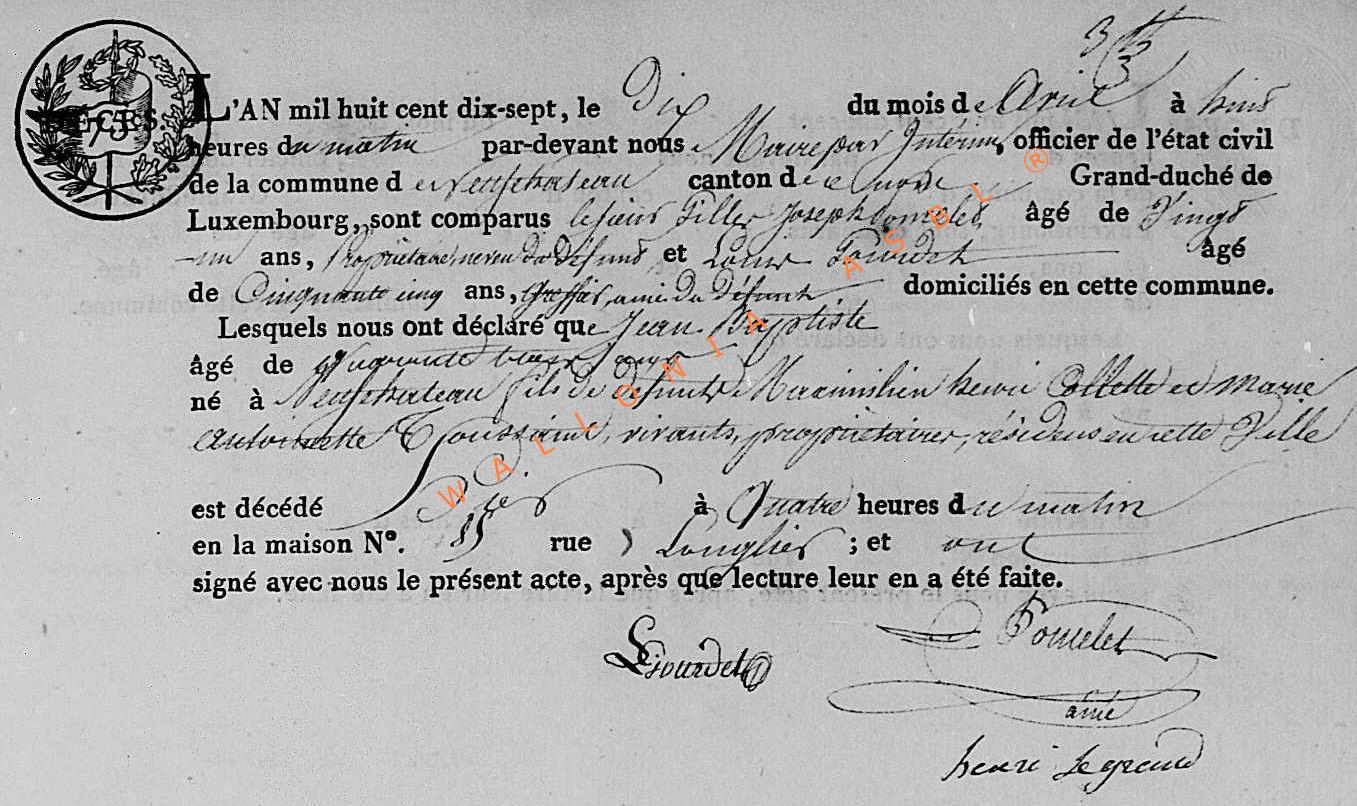 L'AN mil huit cent dix-sept, le Dix du mois de Avril à huit
heures du matin par-devant nous Maire par Intérim, officier de l'état civil
de la commune de Neufchateau canton de ce nom Grand-duché de
Luxembourg, sont comparus le sieur Joseph âgé de Vingt
un ans, Propriétaire, neveu du défunt et Louis Gourdet âgé
de Cinquante cinq ans, Greffier, ami du défunt domiciliés en cette commune.
Lesquels nous ont déclaré que Jean Baptiste
âgé de quarante trois ans
né à Neufchateau fils de défunts Maximilien henri Collette et Marie
Antoinette Toussaint, vivants, propriétaires, résidens en cette Ville
est décédé à Quatre heures du matin
en la maison N°. rue Longlier ; et ont
signé avec nous le présent acte, après que lecture leur en a été faite.
Gourdet Poncelet
ainé
henri Legrand
WALLONIA ASBL ®